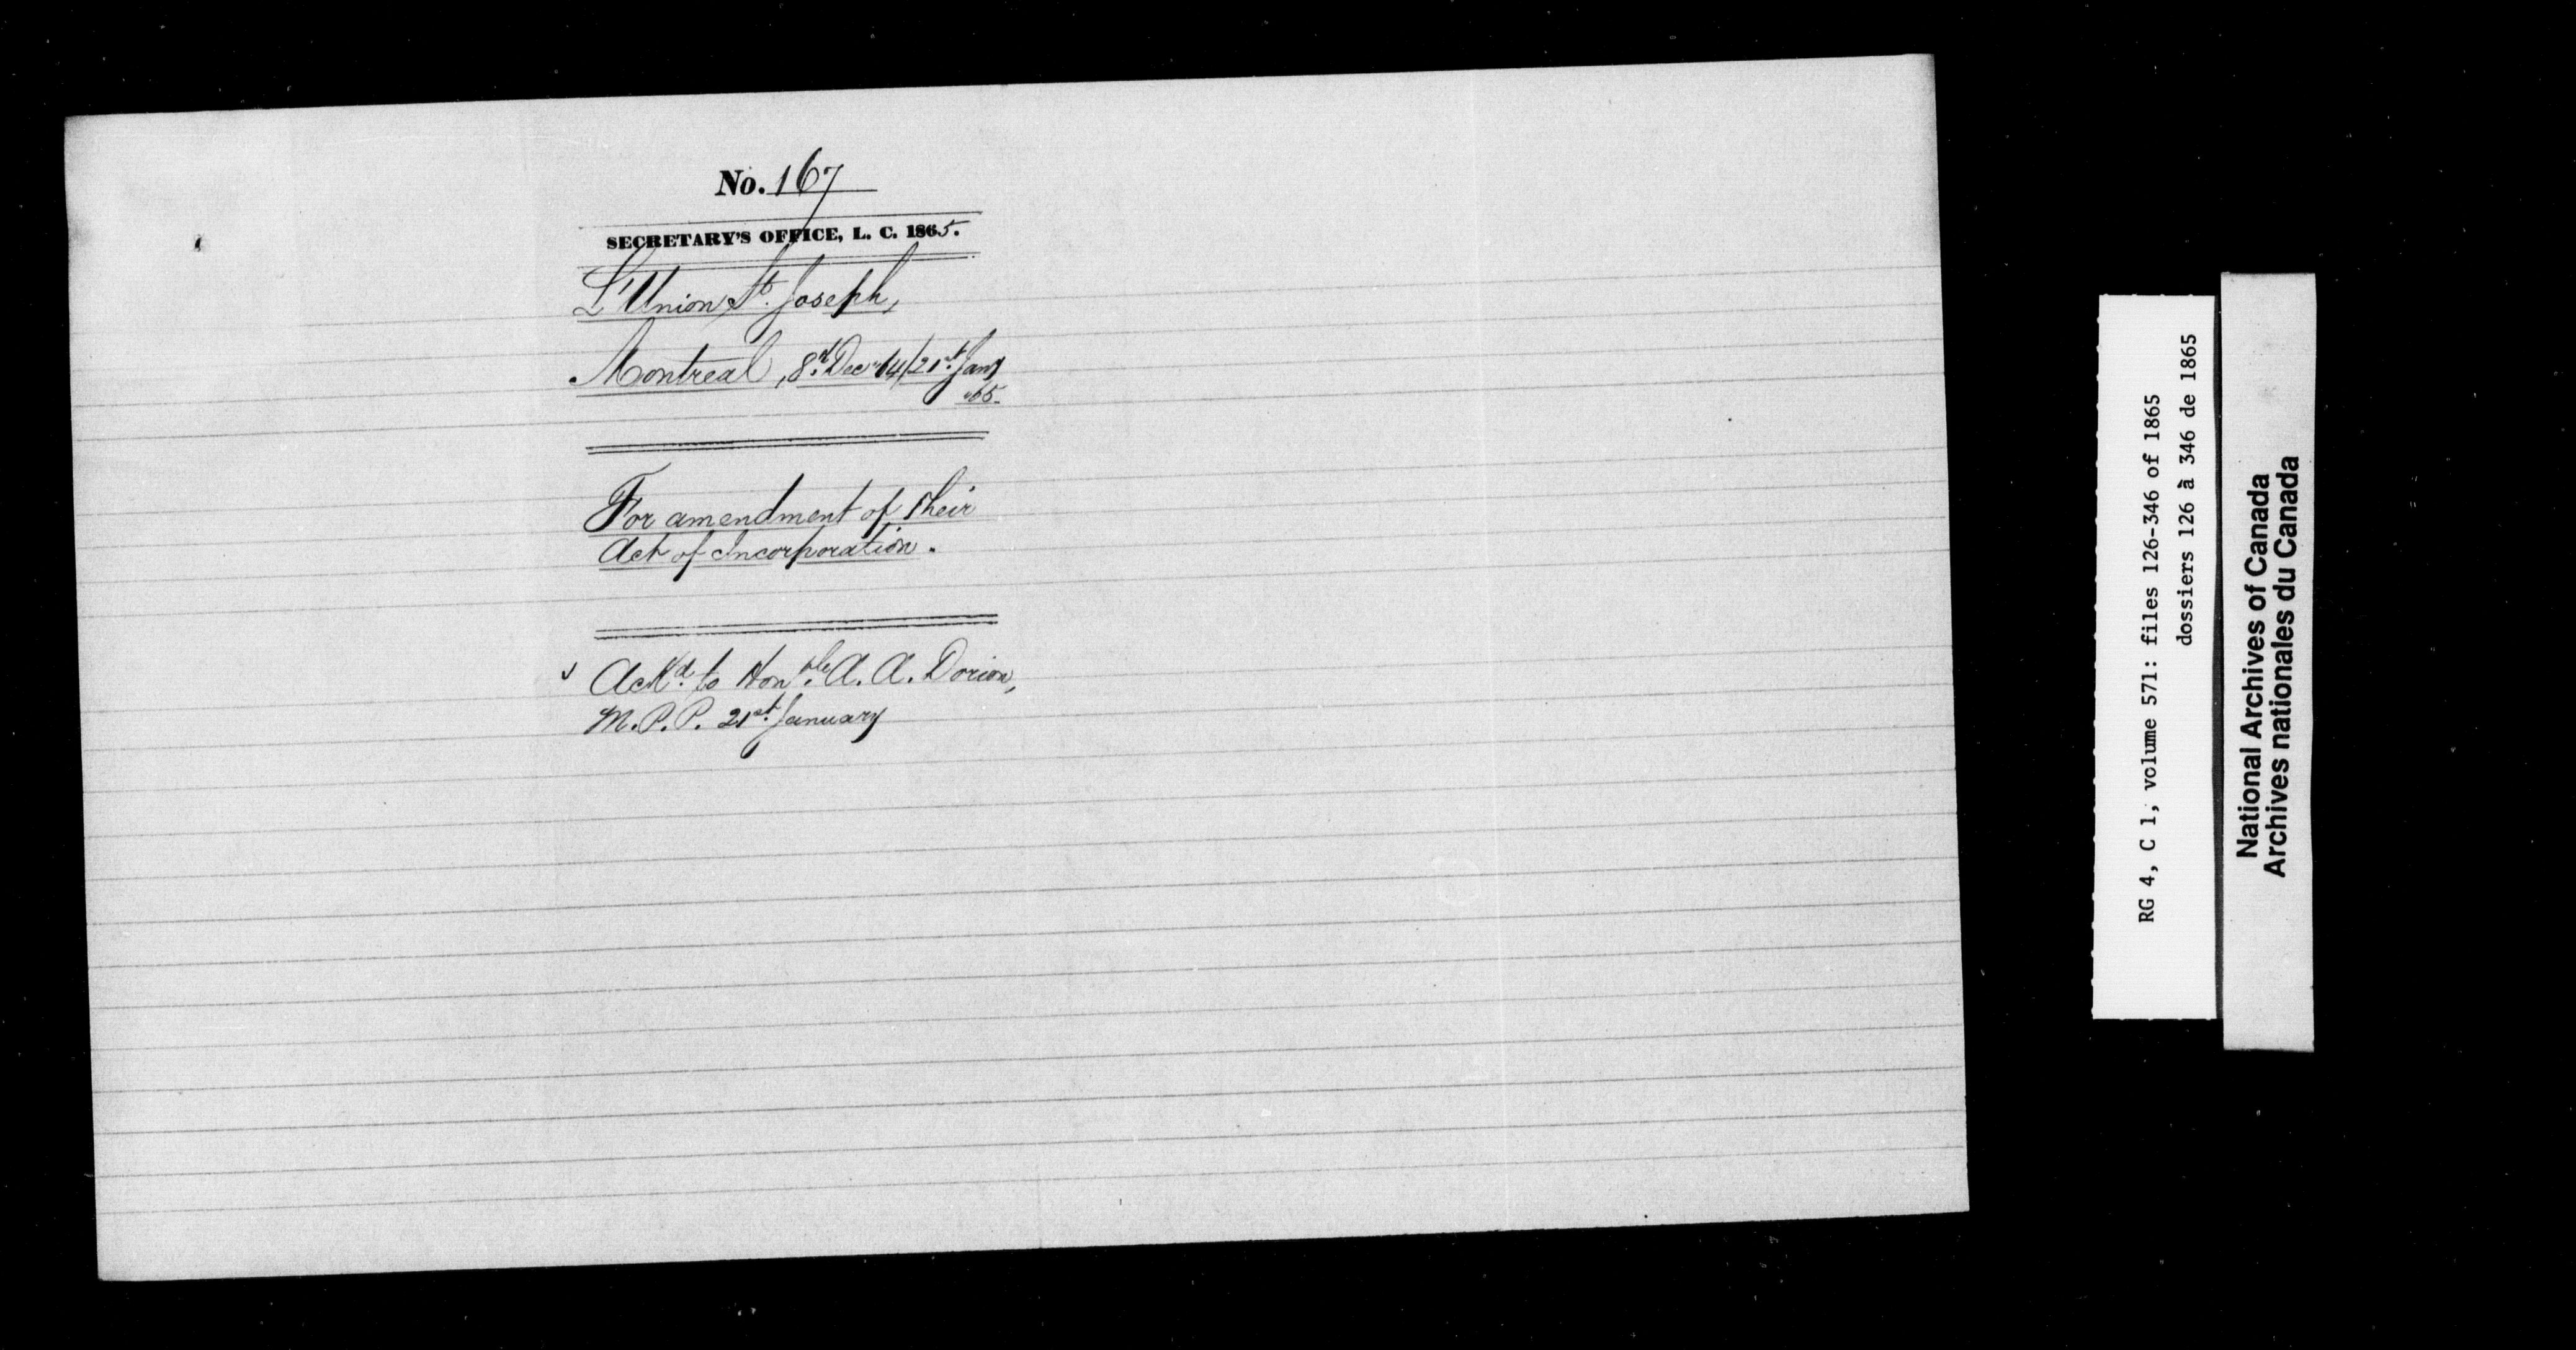 No. 167
SECRETARY'S OFFICE, L. C. 1865.
L'Union St. Joseph,
Montreal, 8th. Dec 64/21st. Jany
65.
For amendment of their
Act of Incorporation.
Ackd. to Honble. A. A. Dorion,
M.P.P. 21st. January
RG 4, C 1, volume 571: files 126-346 of 1865
dossiers 126 à 346 de 1865
National Archives of Canada
Archives nationales du Canada